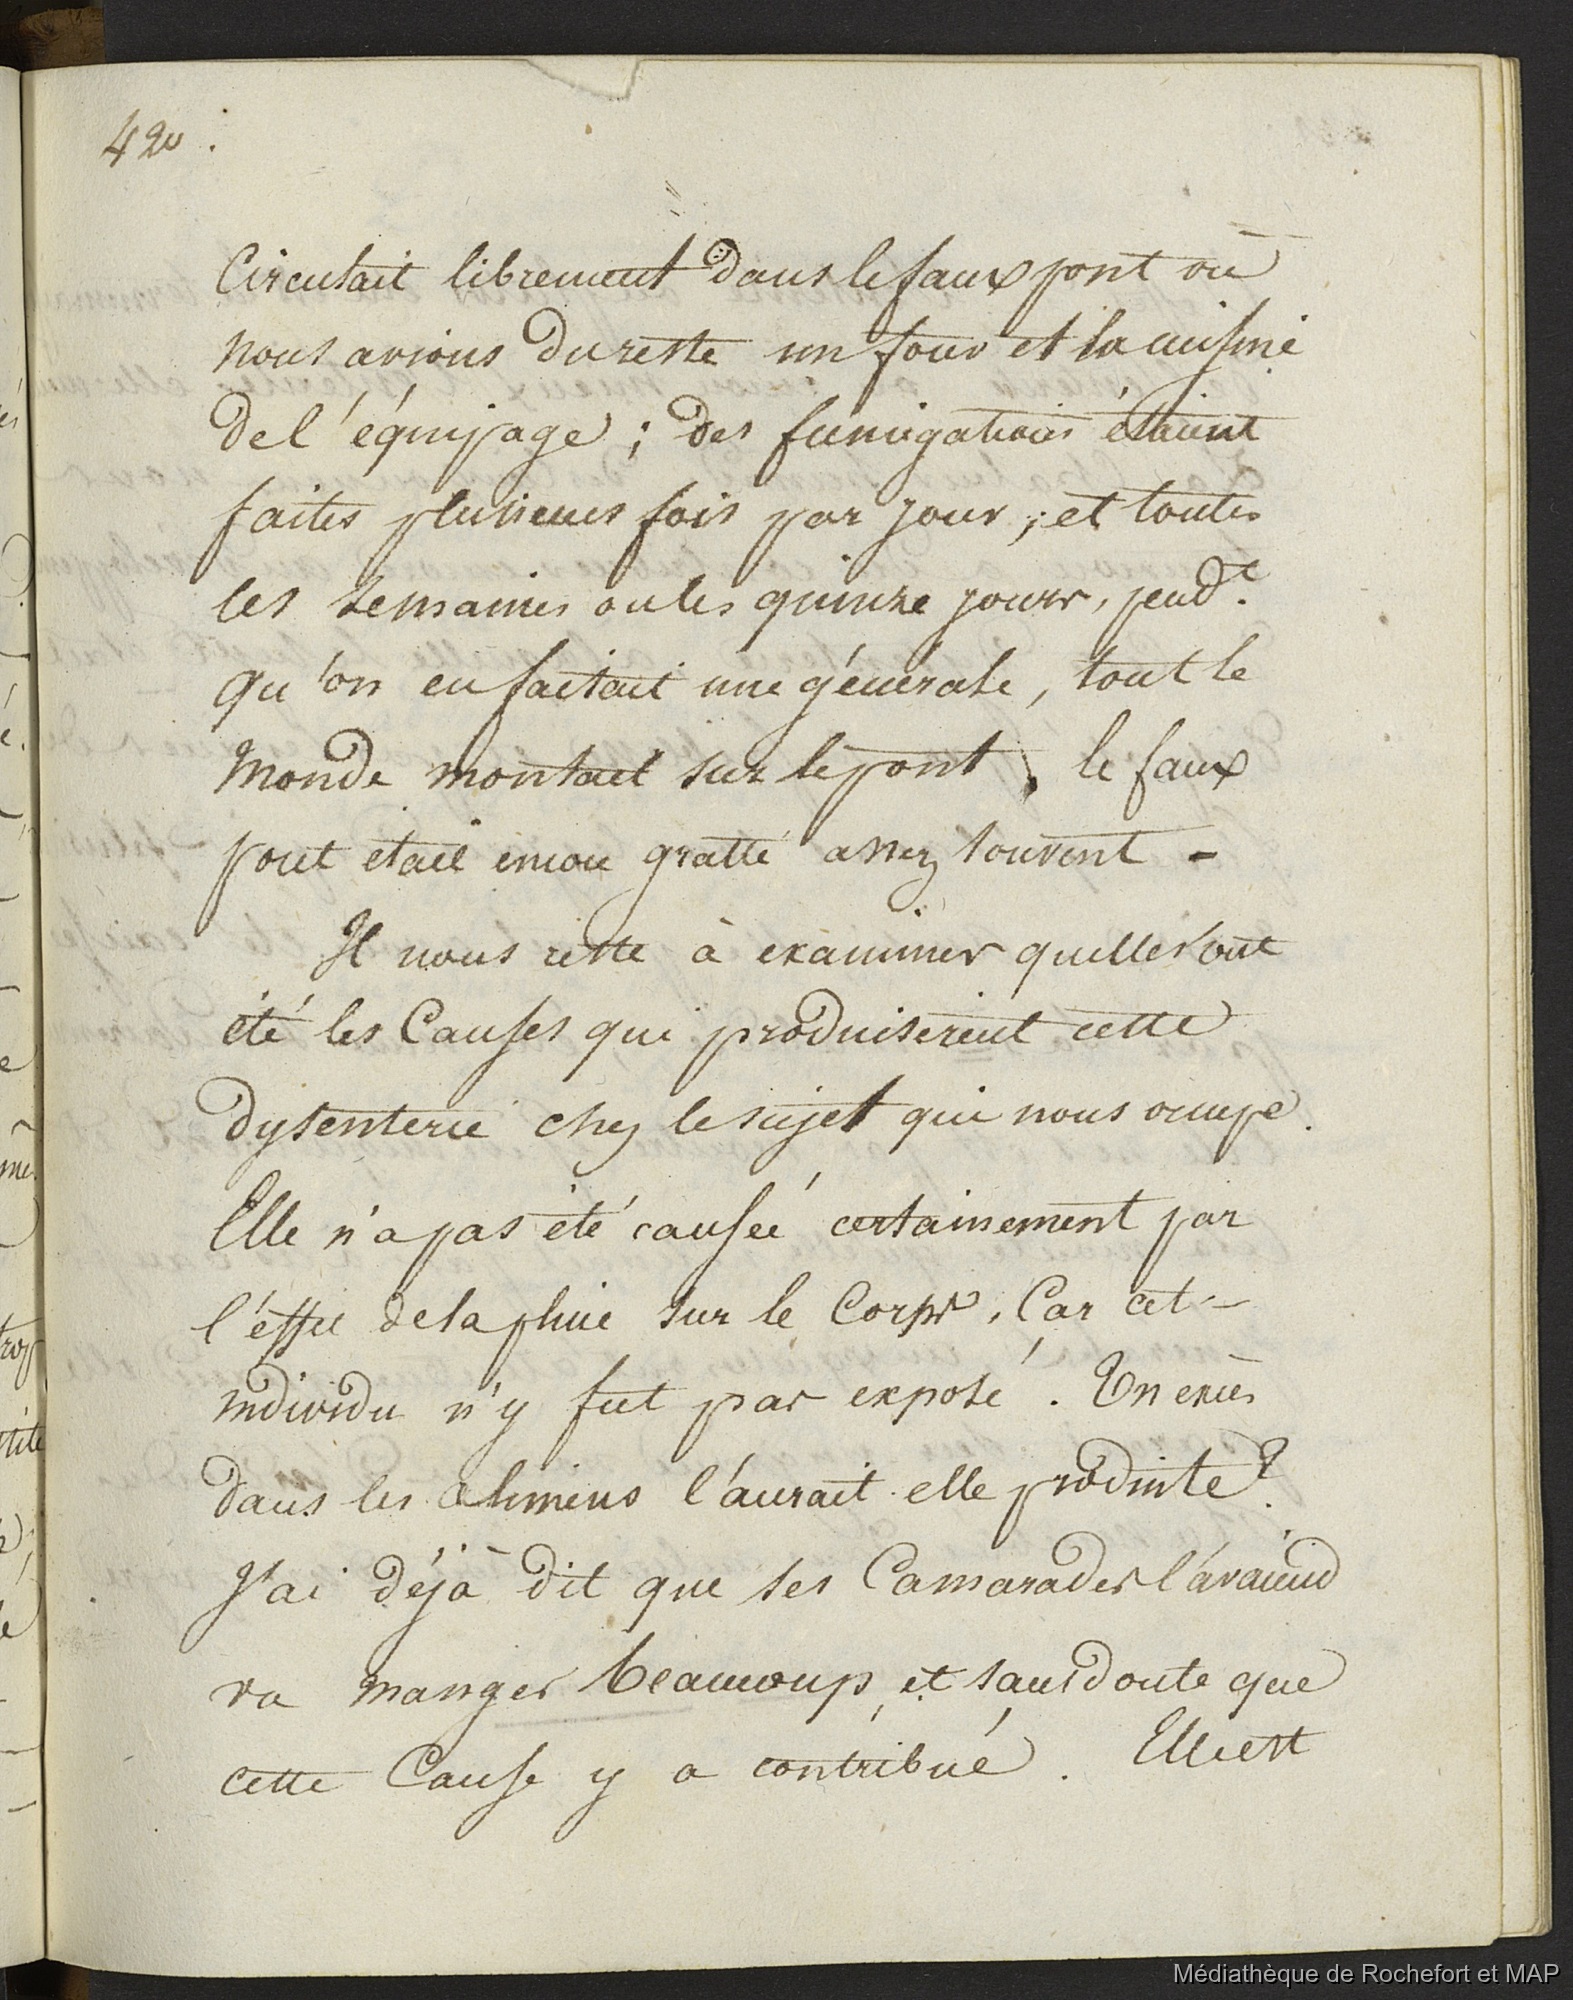 420.
Circulait librement dans le faux pont où
nous avions du reste un four et la cuisine
de l'équipage ; des fumigations étaient
faites plusieurs fois par jour ; et toutes
les semaines ou les quinze jours, pend.t
qu'on en faisait une générale, tout le
monde montait sur le pont, le faux
pont était encore gratté assez souvent -
Il nous reste à examiner quelles ont
été les Causes qui produiserent cette
dysenterie chez le sujet qui nous occupe.
Elle n'a pas été causée certainement par
l'effet de la pluie sur le Corps. Car cet -
individu n'y fut pas exposé. Un excès
dans les alimens l'aurait elle produite ?
J'ai déjà dit que ses Camarades l'avaient
vu manger beaucoup, et sans doute que
cette Cause y a contribué. Elle est
Médiathèque de Rochefort et MAP